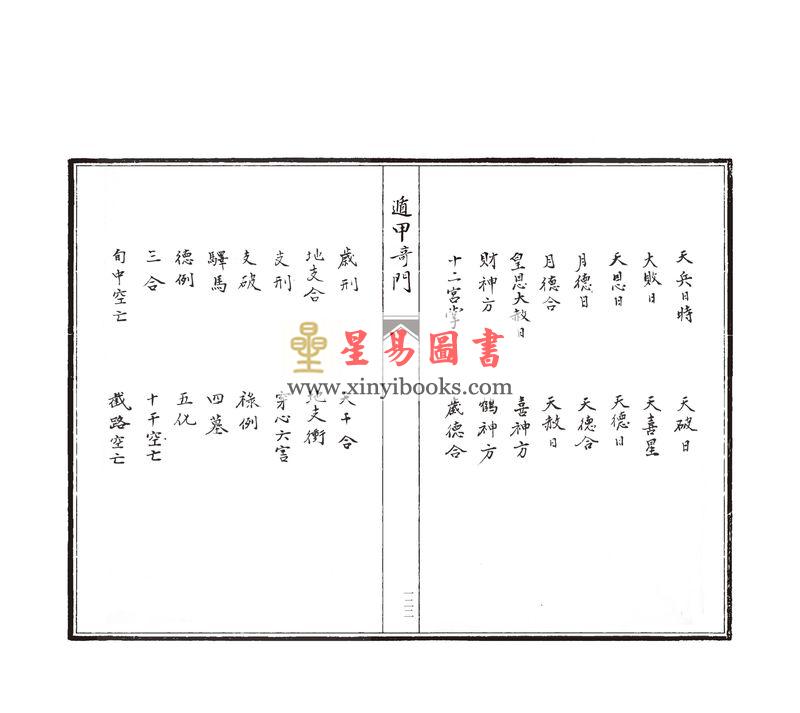 天兵日時 天破日
大敗日 天喜星
天恩日 天德日
月德日 天德合
月德合 天赦日
皇恩大赦日 喜神方
財神方 鶴神方
十二宮掌 歲德合
遁甲奇門
一二二
歲刑 天干合
地支合 地支衝
支刑 穿心六害
支破 祿例
驛馬 四墓
德例 五化
三合 十干空亡
旬中空亡 截路空亡
星易圖書
www.xinyibooks.com